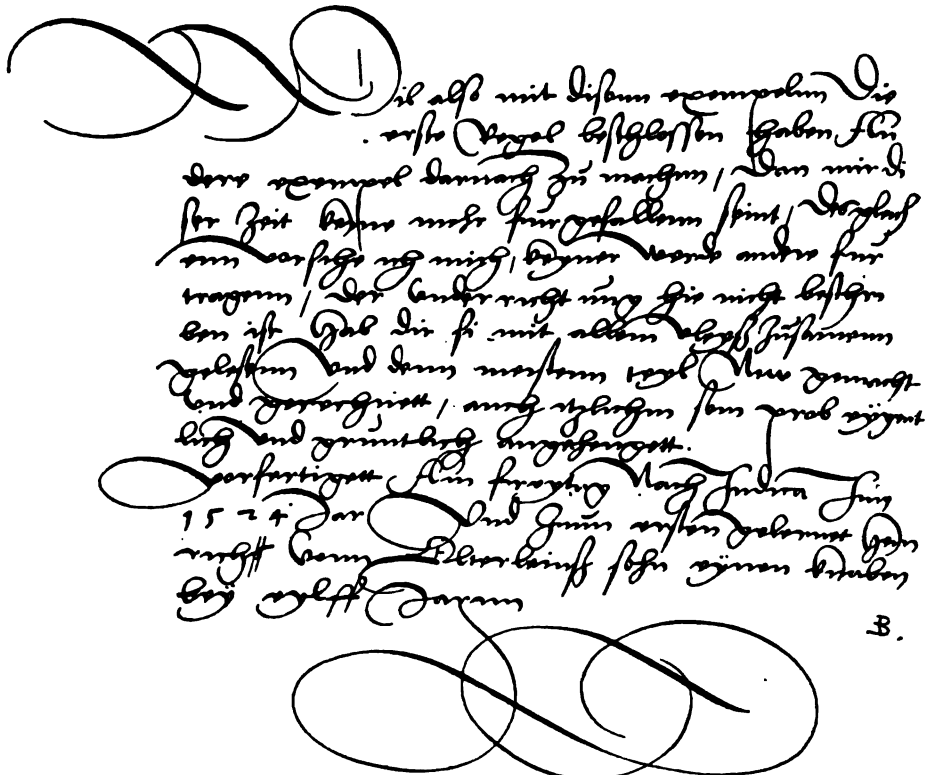 Wil also mit disenn exempelnn Die
erste Regel beschlossen haben An
dere exempel darnach zu machen / Dan mir di
ser Zeit keyne mehr furgefallenn seint / Desgleich
enn vorsihe ich mich, keyner werde andre fur
tragenn / der Underricht nun hie nicht beschri
ben ist Hab die si mit allem vleyß zusamenn
gelesenn Und denn meistenn teyl New gemacht
Und gerechnett / auch itzlichm sein prob eygent
lich und gruntlich angehengett.
vorfertigett Am freytag Nach Judica Im
1524 Jar Und Inun ersten gelernet Hein
richß Vonn Elterleinß sohn eynen knaben
bey eylff Jarnn
B.